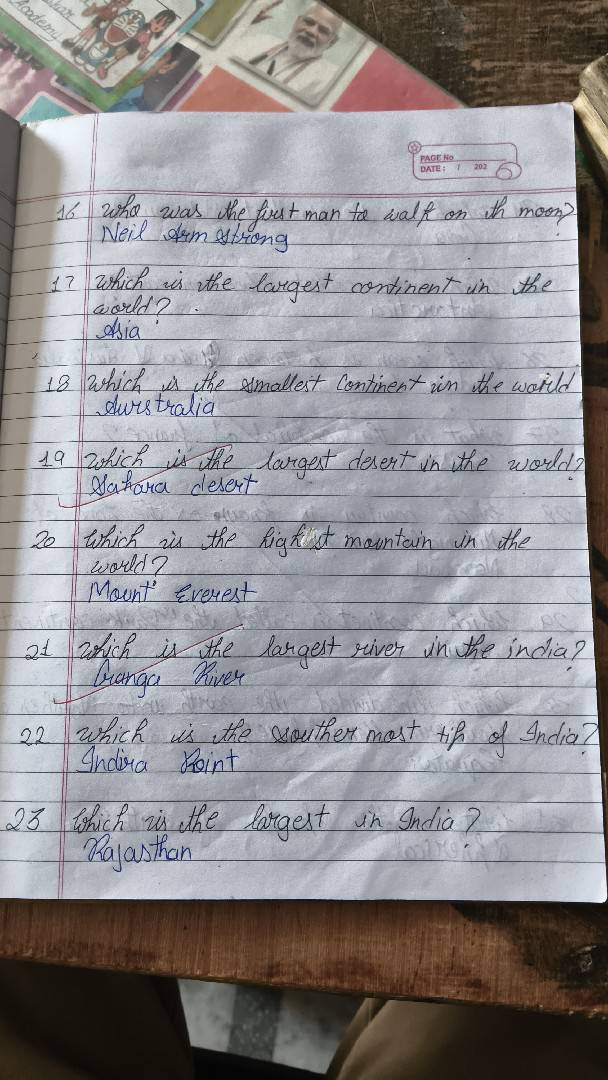 Academy
PAGE No
DATE: / 202
16 who was the first man to walk on th moon?
Neil Arm strong
17 which is the largest continent in the
world?
Asia
18 which is the smallest Continent in the world
Aurstralia
19 which is the largest desert in the world?
Sahara desert
20 which is the highest mountain in the
world?
Mount Everest
21 which is the largest river in the india?
Ganga River
22 which is the souther most tip of India?
Indira Point
23 which is the largest in India?
Rajasthan